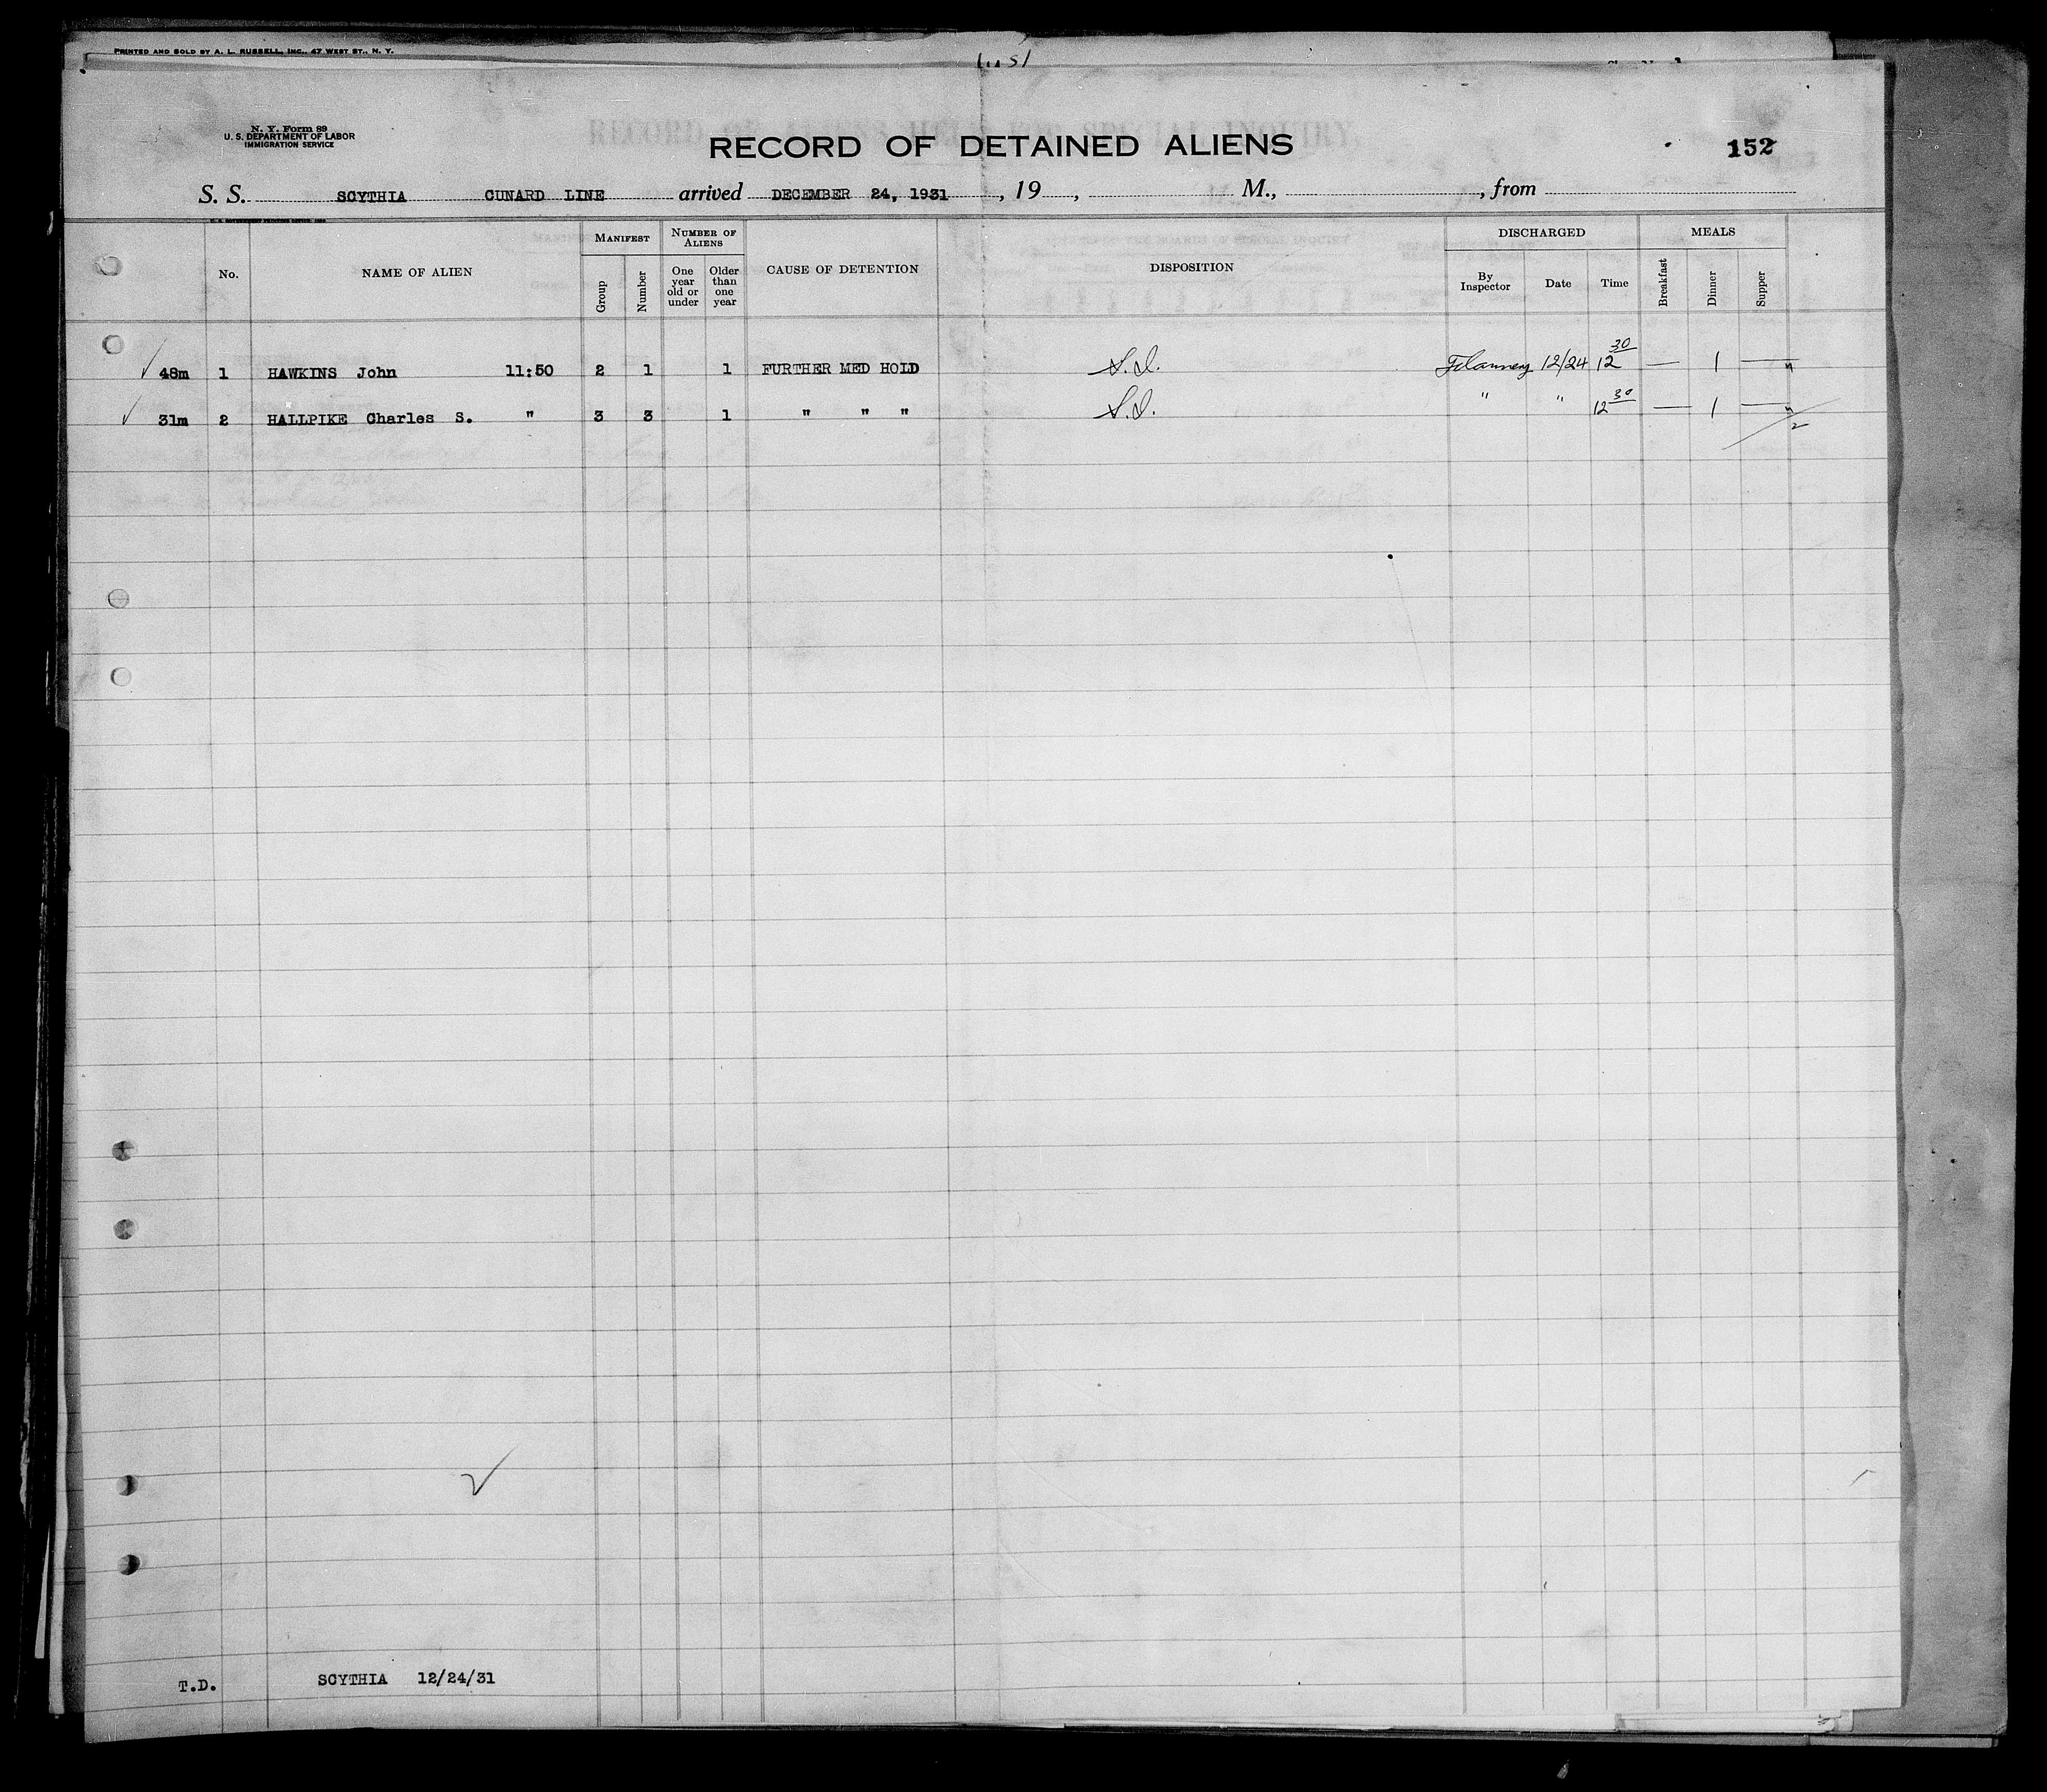 PRINTED AND SOLD BY A. L. RUSSELL, INC., 47 WEST ST., N. Y.
N. Y. Form 89
U. S. DEPARTMENT OF LABOR
IMMIGRATION SERVICE
RECORD OF DETAINED ALIENS
152
S. S. SCYTHIA CUNARD LINE arrived DECEMBER 24, 1931, 19 , M., , from
No. NAME OF ALIEN MANIFEST Group Number NUMBER OF ALIENS One year old or under Older than one year CAUSE OF DETENTION DISPOSITION DISCHARGED By Inspector Date Time MEALS Breakfast Dinner Supper
48m 1 HAWKINS John 11:50 2 1 1 FURTHER MED HOLD S.I. Flannery 12/24 12 30 — 1 —
31m 2 HALLPIKE Charles S. " 3 3 1 " " " S.I. " " 12 30 — 1 —
2
T.D. SCYTHIA 12/24/31